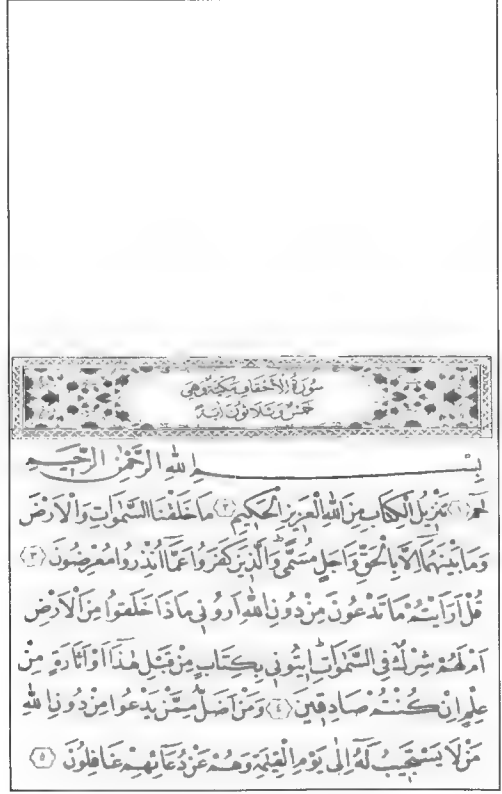 سُورَةُ الْاَحْقَافِ مَكِّيَّةٌ وَهِيَ
خَمْسٌ وَثَلَاثُونَ اٰيَةً
بِسْمِ اللّٰهِ الرَّحْمٰنِ الرَّحٖيمِ
حٰمٓ ﴿١﴾ تَنْزٖيلُ الْكِتَابِ مِنَ اللّٰهِ الْعَزٖيزِ الْحَكٖيمِ ﴿٢﴾ مَا خَلَقْنَا السَّمٰوَاتِ وَالْاَرْضَ
وَمَا بَيْنَهُمَٓا اِلَّا بِالْحَقِّ وَاَجَلٍ مُسَمًّىؕ وَالَّذٖينَ كَفَرُوا عَمَّٓا اُنْذِرُوا مُعْرِضُونَ ﴿٣﴾
قُلْ اَرَاَيْتُمْ مَا تَدْعُونَ مِنْ دُونِ اللّٰهِ اَرُونٖي مَاذَا خَلَقُوا مِنَ الْاَرْضِ
اَمْ لَهُمْ شِرْكٌ فِي السَّمٰوَاتِؕ اٖيتُونٖي بِكِتَابٍ مِنْ قَبْلِ هٰذَٓا اَوْ اَثَارَةٍ مِنْ
عِلْمٍ اِنْ كُنْتُمْ صَادِقٖينَ ﴿٤﴾ وَمَنْ اَضَلُّ مِمَّنْ يَدْعُوا مِنْ دُونِ اللّٰهِ
مَنْ لَا يَسْتَجٖيبُ لَهُٓ اِلٰى يَوْمِ الْقِيٰمَةِ وَهُمْ عَنْ دُعَٓائِهِمْ غَافِلُونَ ﴿٥﴾